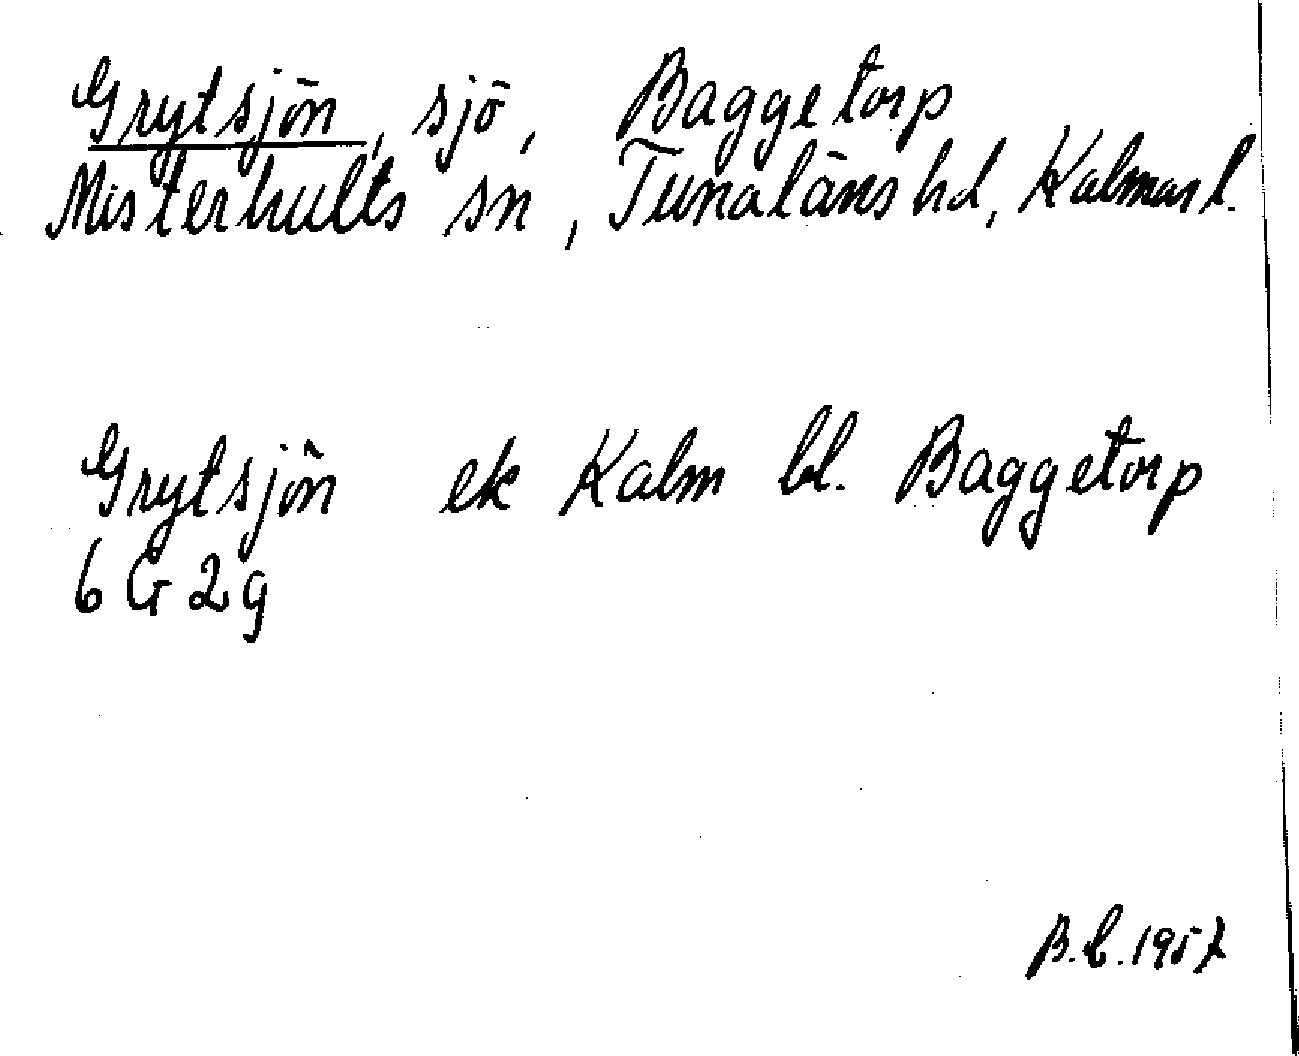 Grytsjön, sjö, Baggetorp
Misterhults sn, Tunaläns hd, Kalmar l.
Grytsjön ek Kalm bl. Baggetorp
6 G 2 g
B.b. 1957